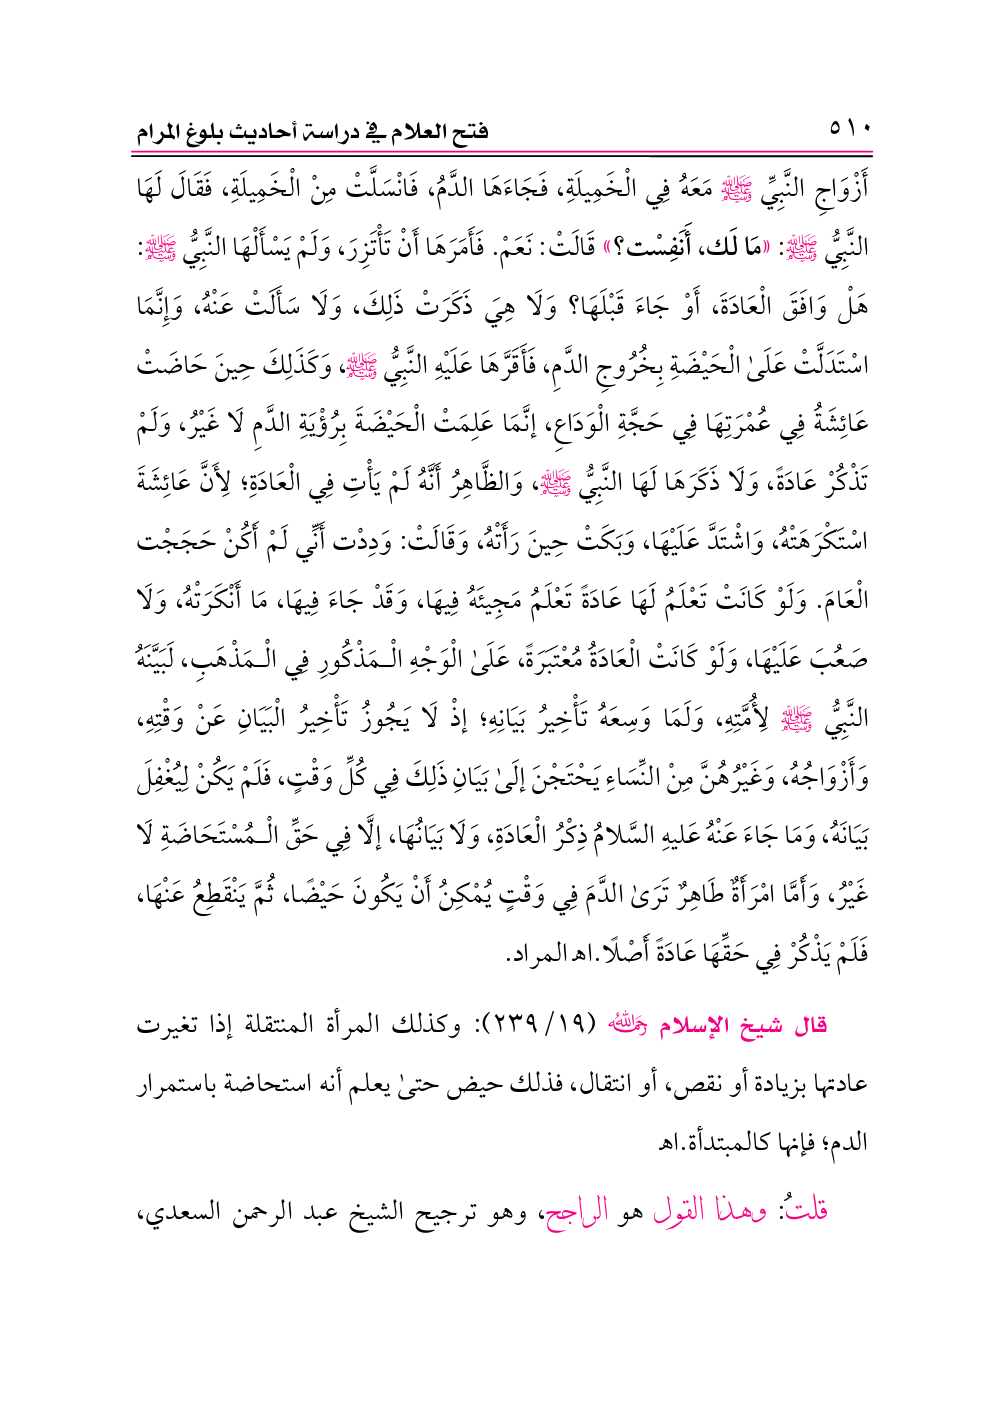 ٥١٠ فتح العلام في دراسة أحاديث بلوغ المرام
أَزْوَاجِ النَّبِيِّ ﷺ مَعَهُ فِي الْخَمِيلَةِ، فَجَاءَهَا الدَّمُ، فَانْسَلَّتْ مِنْ الْخَمِيلَةِ، فَقَالَ لَهَا
النَّبِيُّ ﷺ: «مَا لَك، أَنَفِسْت؟» قَالَتْ: نَعَمْ. فَأَمَرَهَا أَنْ تَأْتَزِرَ، وَلَمْ يَسْأَلْهَا النَّبِيُّ ﷺ:
هَلْ وَافَقَ الْعَادَةَ، أَوْ جَاءَ قَبْلَهَا؟ وَلَا هِيَ ذَكَرَتْ ذَلِكَ، وَلَا سَأَلَتْ عَنْهُ، وَإِنَّمَا
اسْتَدَلَّتْ عَلَىٰ الْحَيْضَةِ بِخُرُوجِ الدَّمِ، فَأَقَرَّهَا عَلَيْهِ النَّبِيُّ ﷺ، وَكَذَلِكَ حِينَ حَاضَتْ
عَائِشَةُ فِي عُمْرَتِهَا فِي حَجَّةِ الْوَدَاعِ، إنَّمَا عَلِمَتْ الْحَيْضَةَ بِرُؤْيَةِ الدَّمِ لَا غَيْرُ، وَلَمْ
تَذْكُرْ عَادَةً، وَلَا ذَكَرَهَا لَهَا النَّبِيُّ ﷺ، وَالظَّاهِرُ أَنَّهُ لَمْ يَأْتِ فِي الْعَادَةِ؛ لِأَنَّ عَائِشَةَ
اسْتَكْرَهَتْهُ، وَاشْتَدَّ عَلَيْهَا، وَبَكَتْ حِينَ رَأَتْهُ، وَقَالَتْ: وَدِدْت أَنِّي لَمْ أَكُنْ حَجَجْت
الْعَامَ. وَلَوْ كَانَتْ تَعْلَمُ لَهَا عَادَةً تَعْلَمُ مَجِيئَهُ فِيهَا، وَقَدْ جَاءَ فِيهَا، مَا أَنْكَرَتْهُ، وَلَا
صَعُبَ عَلَيْهَا، وَلَوْ كَانَتْ الْعَادَةُ مُعْتَبَرَةً، عَلَىٰ الْوَجْهِ الْـمَذْكُورِ فِي الْـمَذْهَبِ، لَبَيَّنَهُ
النَّبِيُّ ﷺ لِأُمَّتِهِ، وَلَمَا وَسِعَهُ تَأْخِيرُ بَيَانِهِ؛ إذْ لَا يَجُوزُ تَأْخِيرُ الْبَيَانِ عَنْ وَقْتِهِ،
وَأَزْوَاجُهُ، وَغَيْرُهُنَّ مِنْ النِّسَاءِ يَحْتَجْنَ إلَىٰ بَيَانِ ذَلِكَ فِي كُلِّ وَقْتٍ، فَلَمْ يَكُنْ لِيُغْفِلَ
بَيَانَهُ، وَمَا جَاءَ عَنْهُ عَليهِ السَّلامُ ذِكْرُ الْعَادَةِ، وَلَا بَيَانُهَا، إلَّا فِي حَقِّ الْـمُسْتَحَاضَةِ لَا
غَيْرُ، وَأَمَّا امْرَأَةٌ طَاهِرٌ تَرَىٰ الدَّمَ فِي وَقْتٍ يُمْكِنُ أَنْ يَكُونَ حَيْضًا، ثُمَّ يَنْقَطِعُ عَنْهَا،
فَلَمْ يَذْكُرْ فِي حَقِّهَا عَادَةً أَصْلًا.اه المراد.
قال شيخ الإسلام رَحِمَهُ اللهُ (١٩/ ٢٣٩): وكذلك المرأة المنتقلة إذا تغيرت
عادتها بزيادة أو نقص، أو انتقال، فذلك حيض حتىٰ يعلم أنه استحاضة باستمرار
الدم؛ فإنها كالمبتدأة.اه
قلتُ: وهذا القول هو الراجح، وهو ترجيح الشيخ عبد الرحمن السعدي،